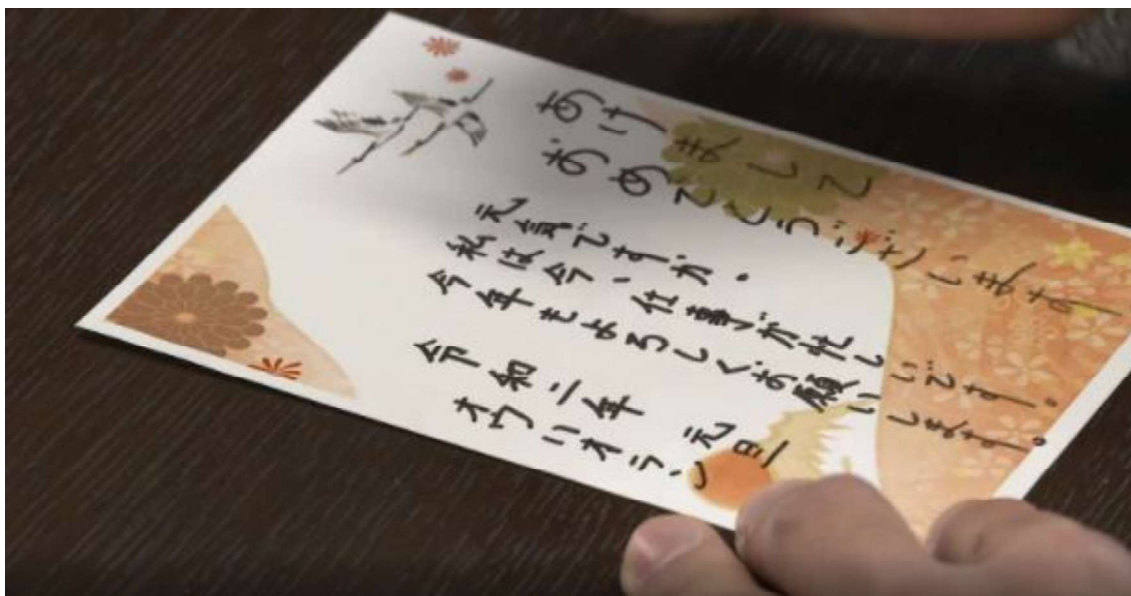 あけまして
おめでとうございます
元気ですか。
私は今、仕事が忙しいです。
今年もよろしくお願いします。
令和二年 元旦
オウハオラン